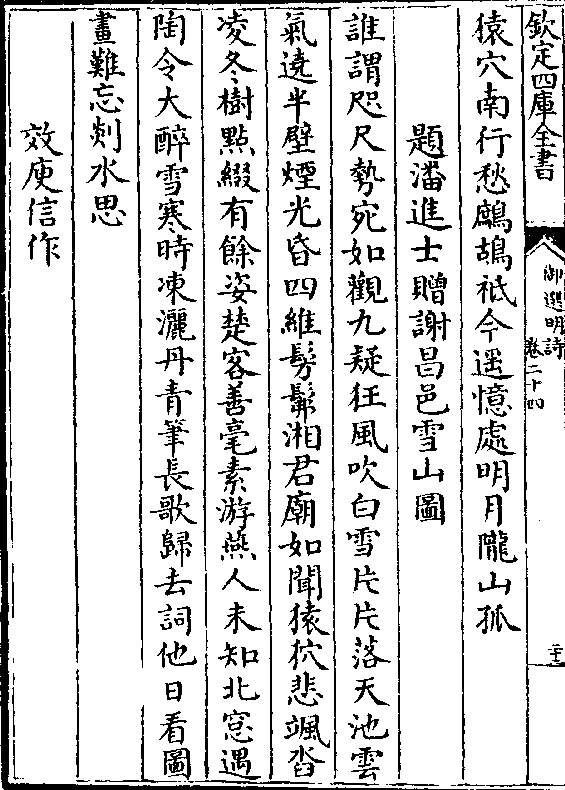 欽定四庫全書
御選明詩
卷二十四
二十三
猿穴南行愁鷓鴣祗今遥憶處明月隴山孤
題潘進士贈謝昌邑雪山圖
誰謂咫尺勢宛如觀九疑狂風吹白雪片片落天池雲
氣遶半壁煙光昏四維髣髴湘君廟如聞猿狖悲颯沓
凌冬樹點綴有餘姿楚客善毫素游燕人未知北窓遇
陶令大醉雪寒時凍灑丹青筆長歌歸去詞他日看圖
畫難忘剡水思
效庾信作